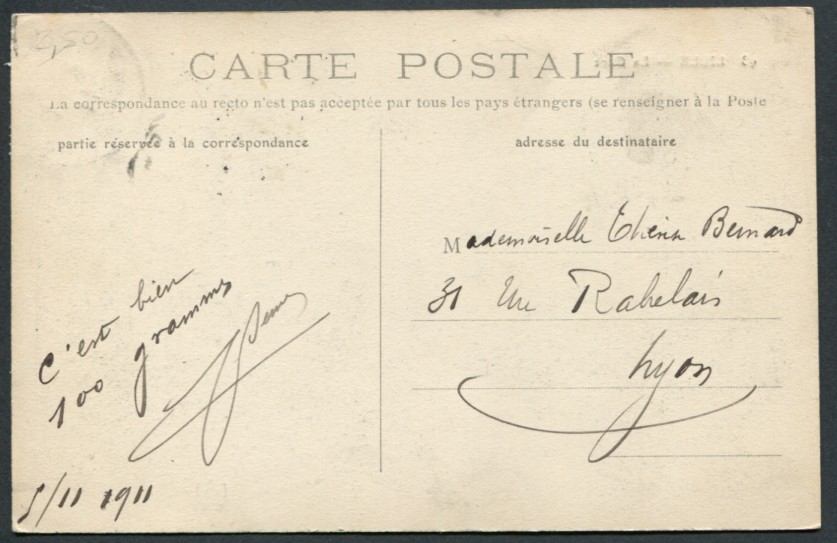 2,50
CARTE POSTALE
La correspondance au recto n'est pas acceptée par tous les pays étrangers (se renseigner à la Poste
partie réservée à la correspondance
adresse du destinataire
Mademoiselle Bernard
31 rue Rabelais
Lyon
C'est bien
100 grammes
5/11 1911